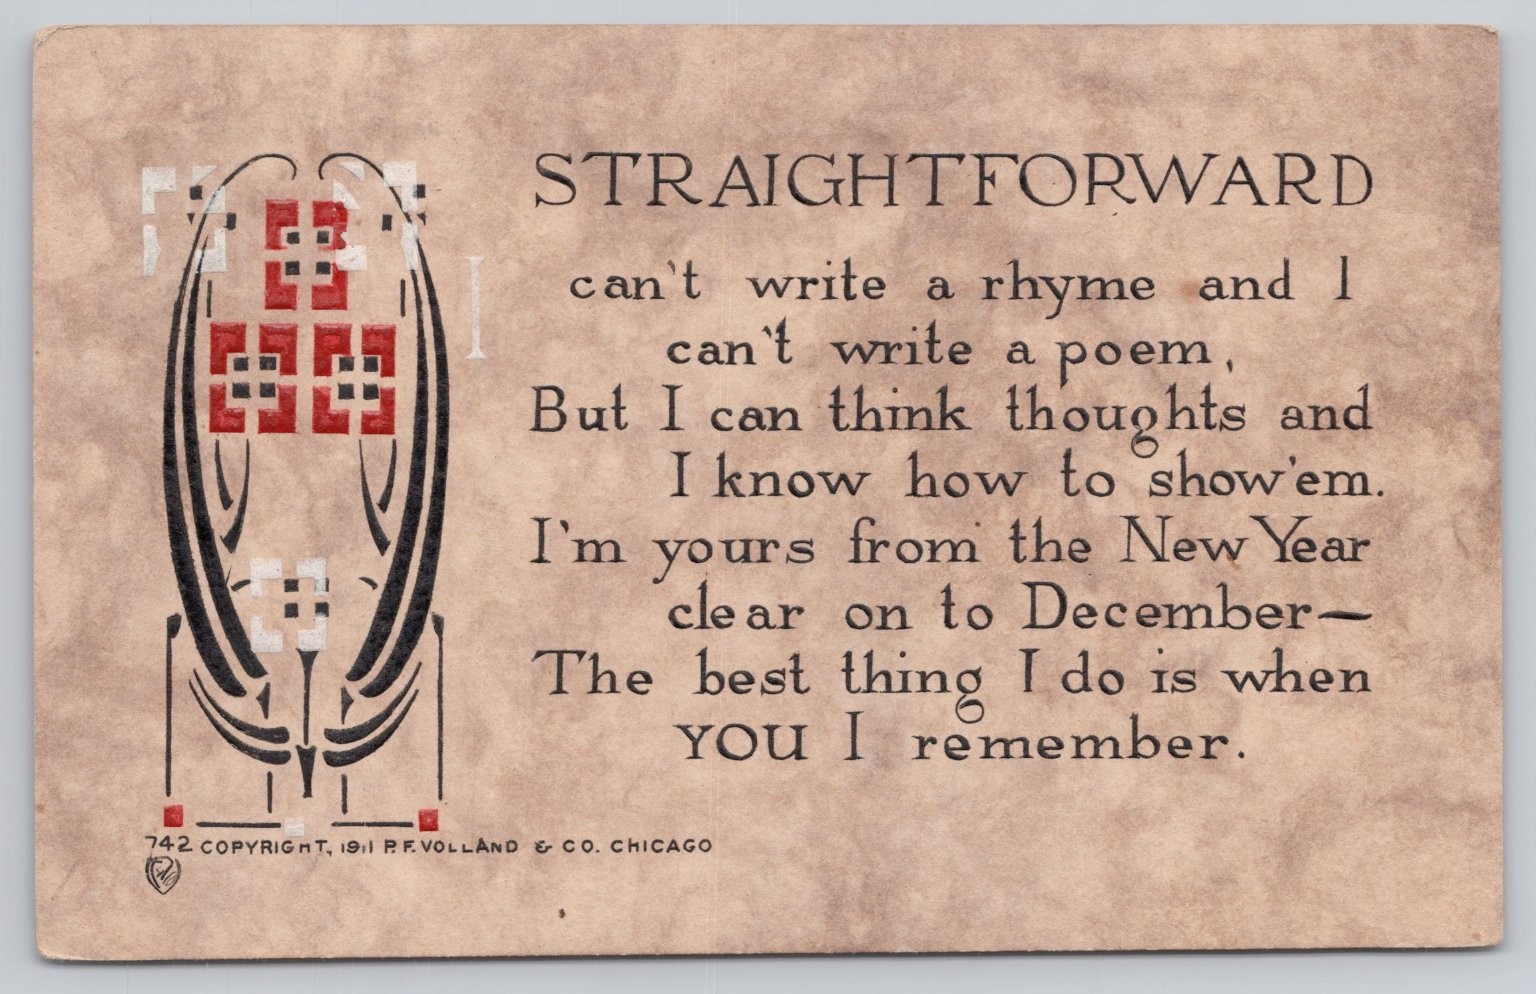 STRAIGHTFORWARD
I can't write a rhyme and I
can't write a poem,
But I can think thoughts and
I know how to show 'em.
I'm yours from the New Year
clear on to December—
The best thing I do is when
YOU I remember.
742 COPYRIGHT, 1911 P.F. VOLLAND & CO. CHICAGO